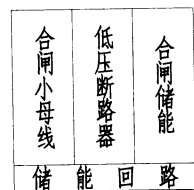 合闸小母线
低压断路器
合闸储能
储能回路